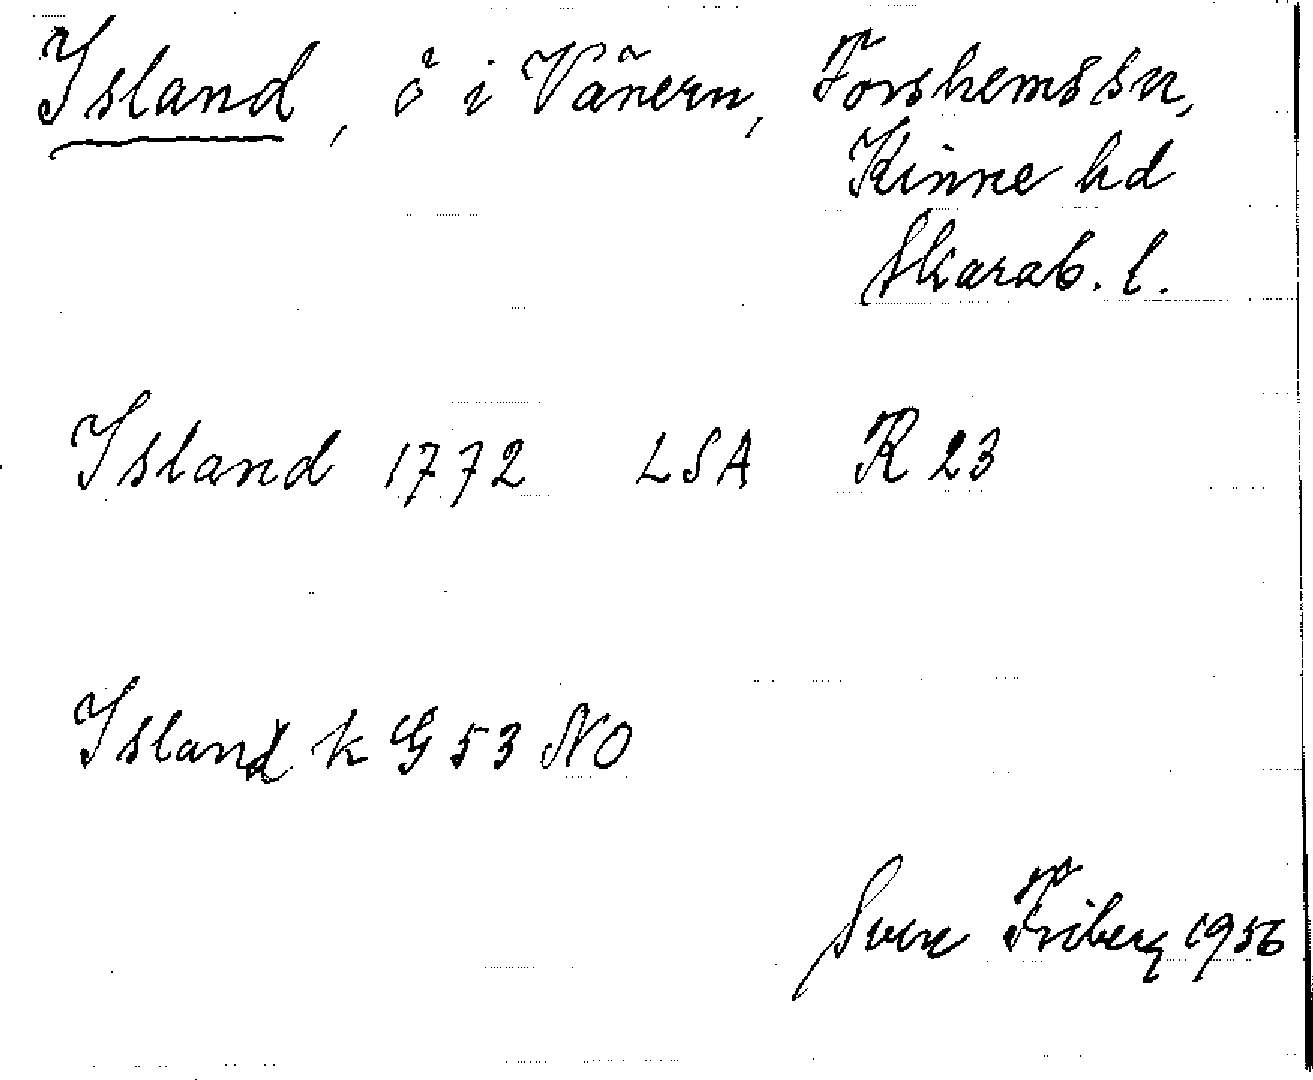 Island, ö i Vänern, Forshems sn,
Kinne hd
Skarab. l.
Island 1772 LSA R 23
Island k G 53 NO
Sven Friberg 1956